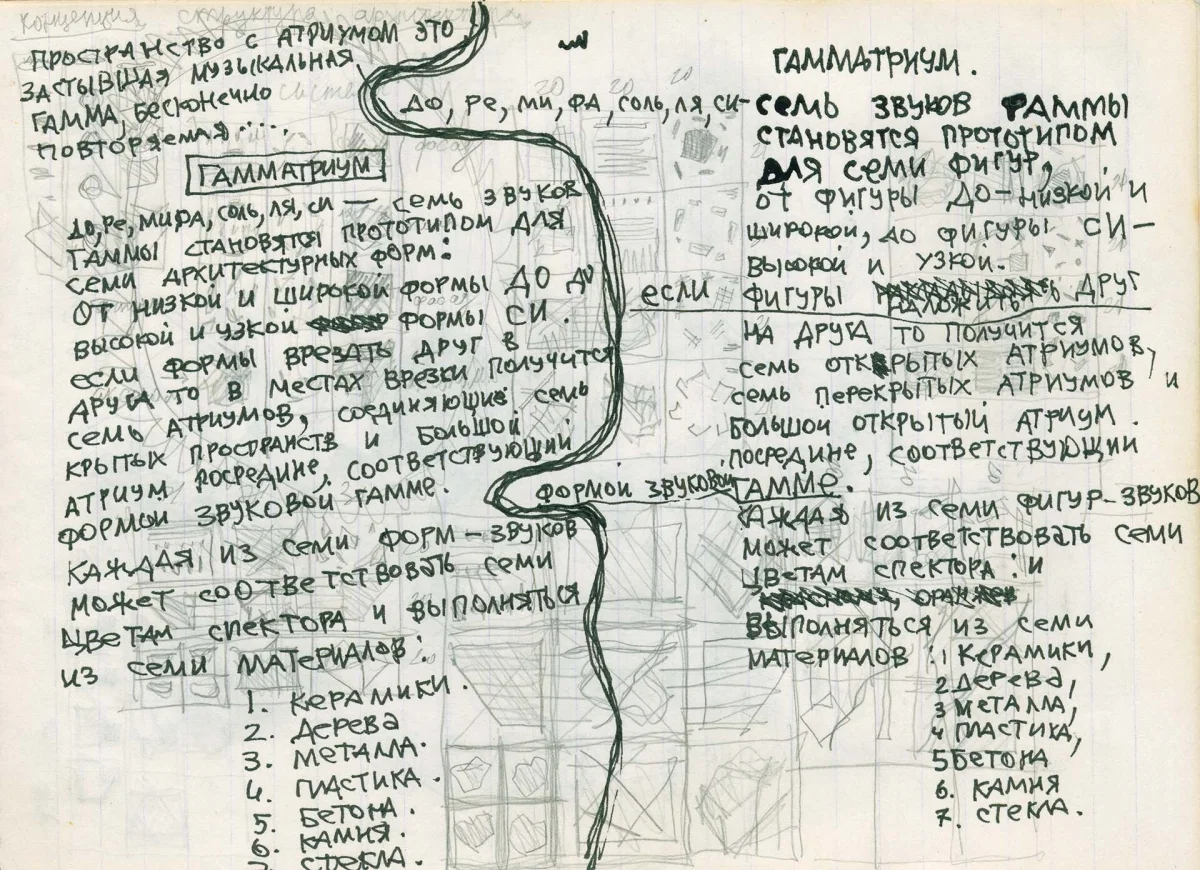 концепция структура архитектура
ПРОСТРАНСТВО С АТРИУМОМ ЭТО
ЗАСТЫВШАЯ МУЗЫКАЛЬНАЯ
ГАММА, БЕСКОНЕЧНО
ПОВТОРЯЕМАЯ ....
ГАММАТРИУМ
ДО, РЕ, МИ, ФА, СОЛЬ, ЛЯ, СИ — СЕМЬ ЗВУКОВ
ГАММЫ СТАНОВЯТСЯ ПРОТОТИПОМ ДЛЯ
СЕМИ АРХИТЕКТУРНЫХ ФОРМ:
ОТ НИЗКОЙ И ШИРОКОЙ ФОРМЫ ДО ДО
ВЫСОКОЙ И УЗКОЙ ФОРМЫ СИ.
ЕСЛИ ФОРМЫ ВРЕЗАТЬ ДРУГ В
ДРУГА ТО В МЕСТАХ ВРЕЗКИ ПОЛУЧИТСЯ
СЕМЬ АТРИУМОВ, СОЕДИНЯЮЩИЕ СЕМЬ
КРЫТЫХ ПРОСТРАНСТВ И БОЛЬШОЙ
АТРИУМ ПОСРЕДИНЕ, СООТВЕТСТВУЮЩИЙ
ФОРМОЙ ЗВУКОВОЙ ГАММЕ.
КАЖДАЯ ИЗ СЕМИ ФОРМ – ЗВУКОВ
МОЖЕТ СООТВЕТСТВОВАТЬ СЕМИ
ЦВЕТАМ СПЕКТОРА И ВЫПОЛНЯТЬСЯ
ИЗ СЕМИ МАТЕРИАЛОВ:
1. КЕРАМИКИ.
2. ДЕРЕВА
3. МЕТАЛЛА.
4. ПЛАСТИКА.
5. БЕТОНА.
6. КАМНЯ.
7. СТЕКЛА.
ГАММАТРИУМ.
ДО, РЕ, МИ, ФА, СОЛЬ, ЛЯ, СИ – СЕМЬ ЗВУКОВ ГАММЫ
СТАНОВЯТСЯ ПРОТОТИПОМ
ДЛЯ СЕМИ ФИГУР,
ОТ ФИГУРЫ ДО – НИЗКОЙ И
ШИРОКОЙ, ДО ФИГУРЫ СИ –
ВЫСОКОЙ И УЗКОЙ.
ЕСЛИ ФИГУРЫ НАЛОЖИТЬ ДРУГ
НА ДРУГА ТО ПОЛУЧИТСЯ
СЕМЬ ОТКРЫТЫХ АТРИУМОВ,
СЕМЬ ПЕРЕКРЫТЫХ АТРИУМОВ И
БОЛЬШОЙ ОТКРЫТЫЙ АТРИУМ.
ПОСРЕДИНЕ, СООТВЕТСТВУЮЩИЙ
ФОРМОЙ ЗВУКОВОЙ ГАММЕ.
КАЖДАЯ ИЗ СЕМИ ФИГУР – ЗВУКОВ
МОЖЕТ СООТВЕТСТВОВАТЬ СЕМИ
ЦВЕТАМ СПЕКТОРА : И
ВЫПОЛНЯТЬСЯ ИЗ СЕМИ
МАТЕРИАЛОВ : 1 КЕРАМИКИ,
2 ДЕРЕВА,
3 МЕТАЛЛА,
4 ПЛАСТИКА,
5 БЕТОНА
6. КАМНЯ
7. СТЕКЛА.